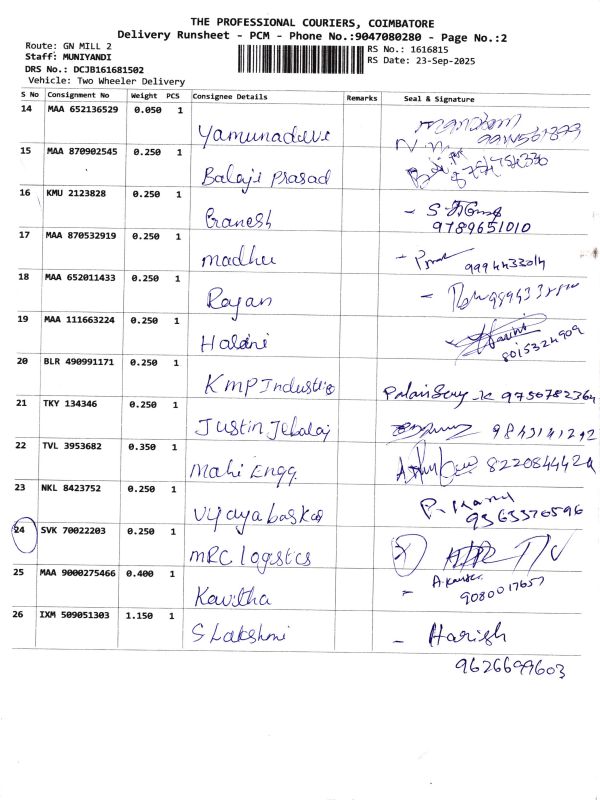 THE PROFESSIONAL COURIERS, COIMBATORE
Delivery Runsheet - PCM - Phone No.:9047080280 - Page No.:2
Route: GN MILL 2
Staff: MUNIYANDI
DRS No.: DCJB161681502
Vehicle: Two Wheeler Delivery
RS No.: 1616815
RS Date: 23-Sep-2025
S No Consignment No Weight PCS Consignee Details Remarks Seal & Signature
14 MAA 652136529 0.050 1 Yamunadevi
15 MAA 870902545 0.250 1 Balaji Prasad 8754754330
16 KMU 2123828 0.250 1 Ganesh 9789651010
17 MAA 870532919 0.250 1 madhu 9994433014
18 MAA 652011433 0.250 1 Rajan
19 MAA 111663224 0.250 1 8015324909
20 BLR 490991171 0.250 1 KMP Industries 9750782364
21 TKY 134346 0.250 1 Justin Jebaraj 9843141242
22 TVL 3953682 0.350 1 Mahi Engg. 8220844424
23 NKL 8423752 0.250 1 Vijayabaskar 9363370596
24 SVK 70022203 0.250 1 MRC logistics
25 MAA 9000275466 0.400 1 Kavitha 9080017657
26 IXM 509051303 1.150 1 S Lakshmi - Harish
9626699603